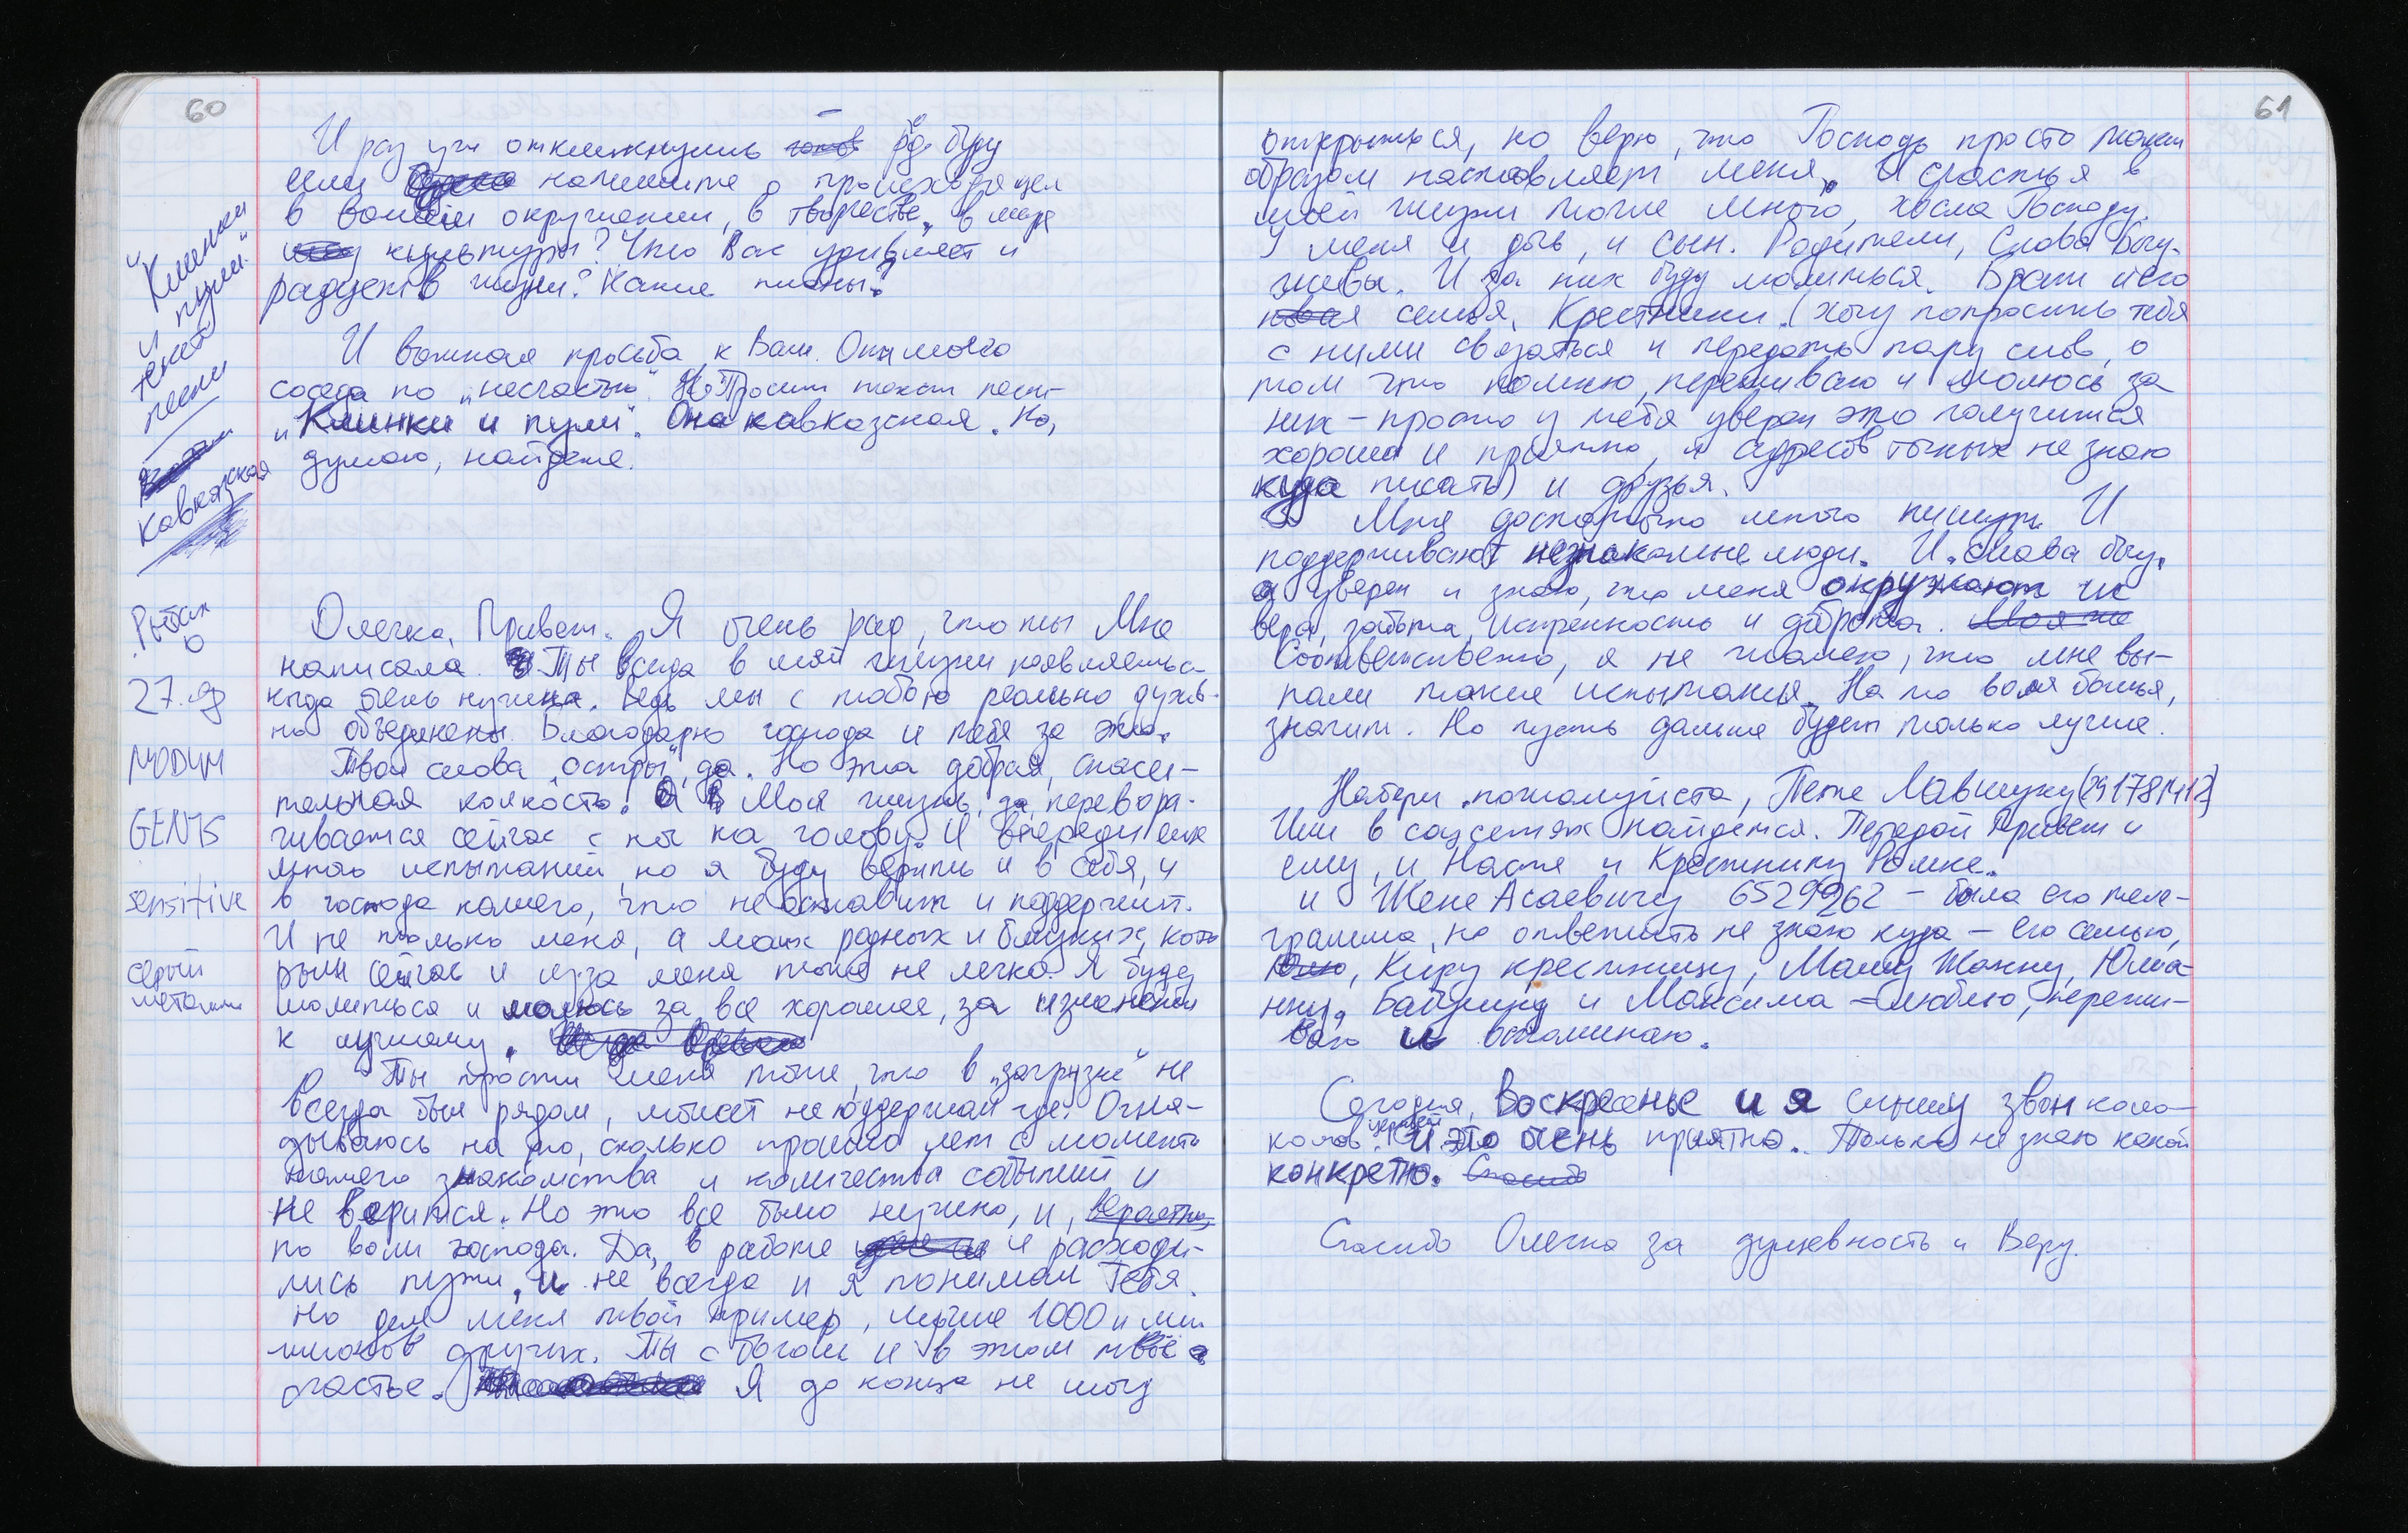 60
И раз уж откликнулись рад буду
если напишите о происходящем
в вашем окружении, в творчестве, в мире
культуры? Что Вас удивляет и
радует в жизни? Какие планы?
И важная просьба к Вам. От моего
соседа по „несчастью“. Просит текст песни
„Клинки и пули“. Она кавказская. Но,
думаю, найдете.
„Клинки
и пули“
текст
песни
Кавказская
Олечка, Привет. Я очень рад, что ты Мне
написала. Ты всегда в моей жизни появляешься
когда очень нужна. Ведь мы с тобою реально духов-
но объединены. Благодарю господа и тебя за это.
Твои слова „остры“, да. Но эта добрая, спаси-
тельная колкость. Моя жизнь, да, перевора-
чивается сейчас с ног на голову. И впереди еще
много испытаний, но я буду верить и в себя, и
в господа нашего, что не оставит и поддержит.
И не только меня, а моих родных и близких, кото
рым сейчас и из-за меня тоже не легко. Я буду
молиться и молюсь за все хорошее, за изменения
к лучшему.
Ты прости меня тоже, что в „загрузке“ не
всегда был рядом, может не поддержал где. Огля-
дываюсь на то, сколько прошло лет с момента
нашего знакомства и количества событий и
не верится. Но это все было нужно, и, вероятно,
по воли господа. Да, в работе и расходи-
лись пути, и не всегда и я понимал Тебя.
Но для меня твой пример, лучше 1000 и мил
лионов других. Ты с богом и в этом твое
счастье. Я до конца не могу
27.
MODUM
GENTS
sensitive
серый
металлик
61
открыться, но верю, что Господь просто таким
образом наставляет меня. И счастья в
моей жизни тоже много, хвала Господу.
У меня и дочь, и сын. Родители, Слава Богу.
живы. И за них буду молиться. Брат и его
семья. Крестники. (хочу попросить тебя
с ними связаться и передать пару слов, о
том что помню, переживаю и молюсь за
них – просто у тебя уверен это получится
хорошо и приятно, я адресов точных не знаю
куда писать) и друзья.
Мне достаточно много пишут. И
поддерживают незнакомые люди. И слава богу.
я уверен и знаю, что меня окружают их
вера, забота, искренность и доброта. Моя же
Соответственно, я не жалею, что мне вы-
пали такие испытания. На то воля божья,
значит. Но пусть дальше будет только лучше.
Набери, пожалуйста, Пете Лавшуку
Или в соцсетях найдется. Передай Привет и
ему, и Насте и Крестнику Ромке.
и Жене Асаевичу 6529962 – была его теле-
грамма, но ответить не знаю куда – его семью,
Киру крестницу, Машу Жанну, Юлиа-
нну, Бабулину и Максима – люблю, пережи-
ваю и вспоминаю.
Сегодня, Воскресенье и я слышу звон коло-
колов церквей. И это очень приятно. Только не знаю какой
конкретно. Спасибо
Спасибо Олечка за душевность и Веру.